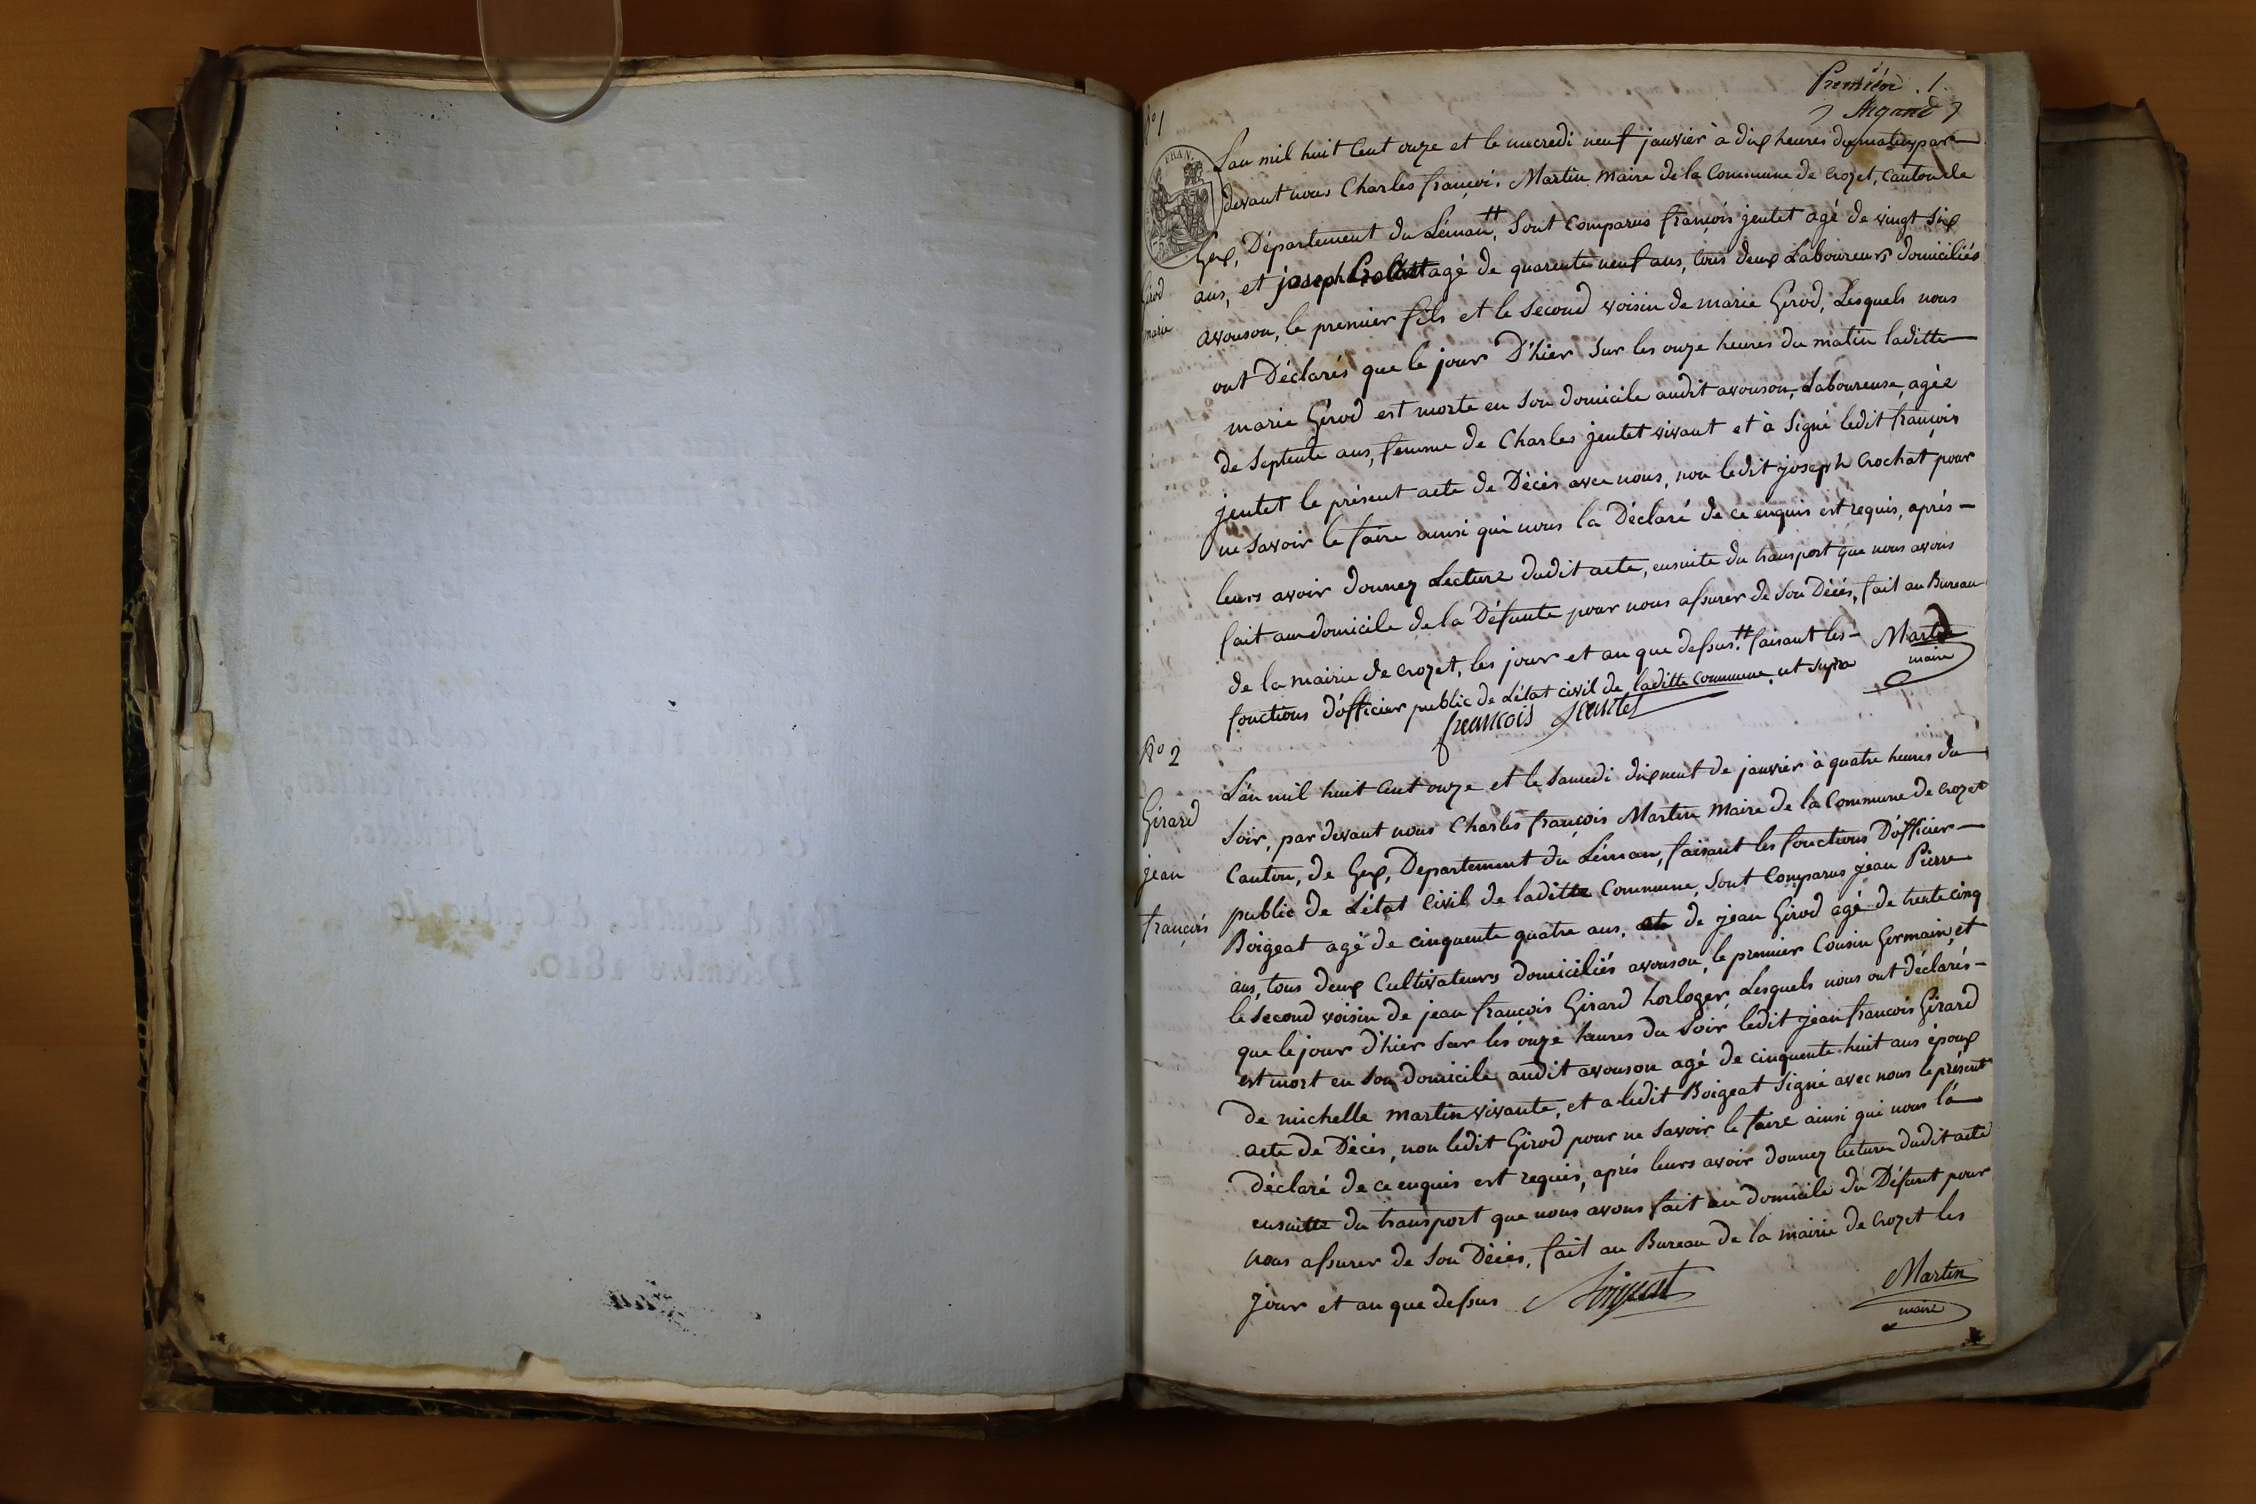 Première . 1.
Argand
N° 1
FRAN.
L'an mil huit Cent onze et le mecredi neuf janvier à dix heures du matin par-
devant nous Charles françois Martin Maire de la Commune de crozet, canton de
Gex, Département du Léman,# Sont Comparus françois jentet agé de vingt six
ans, et joseph Crochat agé de quarente neuf ans, tous deux Laboureurs domiciliés
Girod
marie
avouson, le premier fils et le second voisin de marie Girod, Lesquels nous
ont Déclarés que le jour D'hier sur les onze heures du matin laditte
marie Girod est morte en son domicile audit avouson, Laboureuse, agée
de Septente ans, femme de Charles jentet vivant et à Signé ledit françois
jentet le présent acte de Décès avec nous, non ledit joseph Crochat pour
ne savoir le faire ainsi qui nous la Déclaré de ce enquis est requis, après-
leurs avoir donnez Lecture dudit acte, ensuite du transport que nous avons
fait au domicile de la Défunte pour nous assurer de son Décès, fait au Bureau
de la mairie de crozet, les jour et an que dessus.# faisant les-
fonctions d'officier public de L'état civil de laditte commune, ut supra
Martin
maire
francois Jentet
N° 2
Girard
jean
françois
L'an mil huit Cent onze et le samedi dixneuf de janvier à quatre heures du
Soir, par devant nous Charles françois Martin Maire de la Commune de crozet
Canton, de Gex, Departement du Léman, faisant les fonctions D'officier-
public de L'état Civil de laditte Commune, Sont Comparus jean Pierre
Boigeat agé de cinquente quatre ans, et de jean Girod agé de trente cinq
ans, tous deux Cultivateurs domiciliés avouson, le premier Cousin Germain, et
le second voisin de jean françois Girard horloger, Lesquels nous ont déclarés-
que le jour d'hier sur les onze heures du Soir ledit jean francois Girard
est mort en son domicile audit avouson agé de cinquente huit ans époux
de michelle martin vivante, et a ledit Boigeat Signé avec nous le présent
acte de Décès, non ledit Girod pour ne savoir le faire ainsi qui nous là
déclaré de ce enquis est requis, après leurs avoir donnez lecture dudit acte
ensuitte du transport que nous avons fait au domicile du Défunt pour
nous assurer de son Décès, fait au Bureau de la mairie de crozet les
jour et an que dessus
Boigeat
Martin
maire